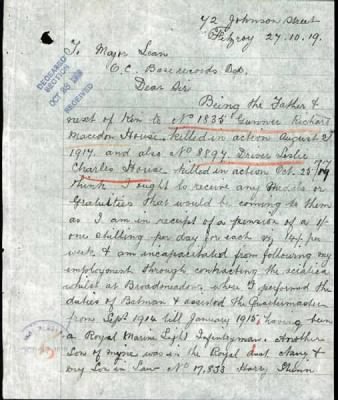 72 Johnson Street
Fitzroy 27.10.19.
To Major Lean
O.C. Base records Dep.
Dear Sir
DECEASED
SECTION
OCT
RECEIVED
Being the Father &
next of Kin to No 1835 Gunner Richard
Macedon House, killed in action August 21
1917. and also No 8897 Driver Leslie
Charles House killed in action Oct. 25th 1917
I think I ought to receive any Medals or
Gratuities that would be coming to them
as I am in receipt of a pension of a 1/-
one shilling per day for each viz 14/- per
week & am incapacitated from following my
employment through contracting the sciatica
whilst at Broadmeadows, where I performed the
duties of Batman & assisted the Quartermaster
from Sept 1914 till January 1915, having been
a Royal Marine Light Infantryman. Another
Son of myne was in the Royal Aust Navy &
my Son in Law No 17,533 Harry